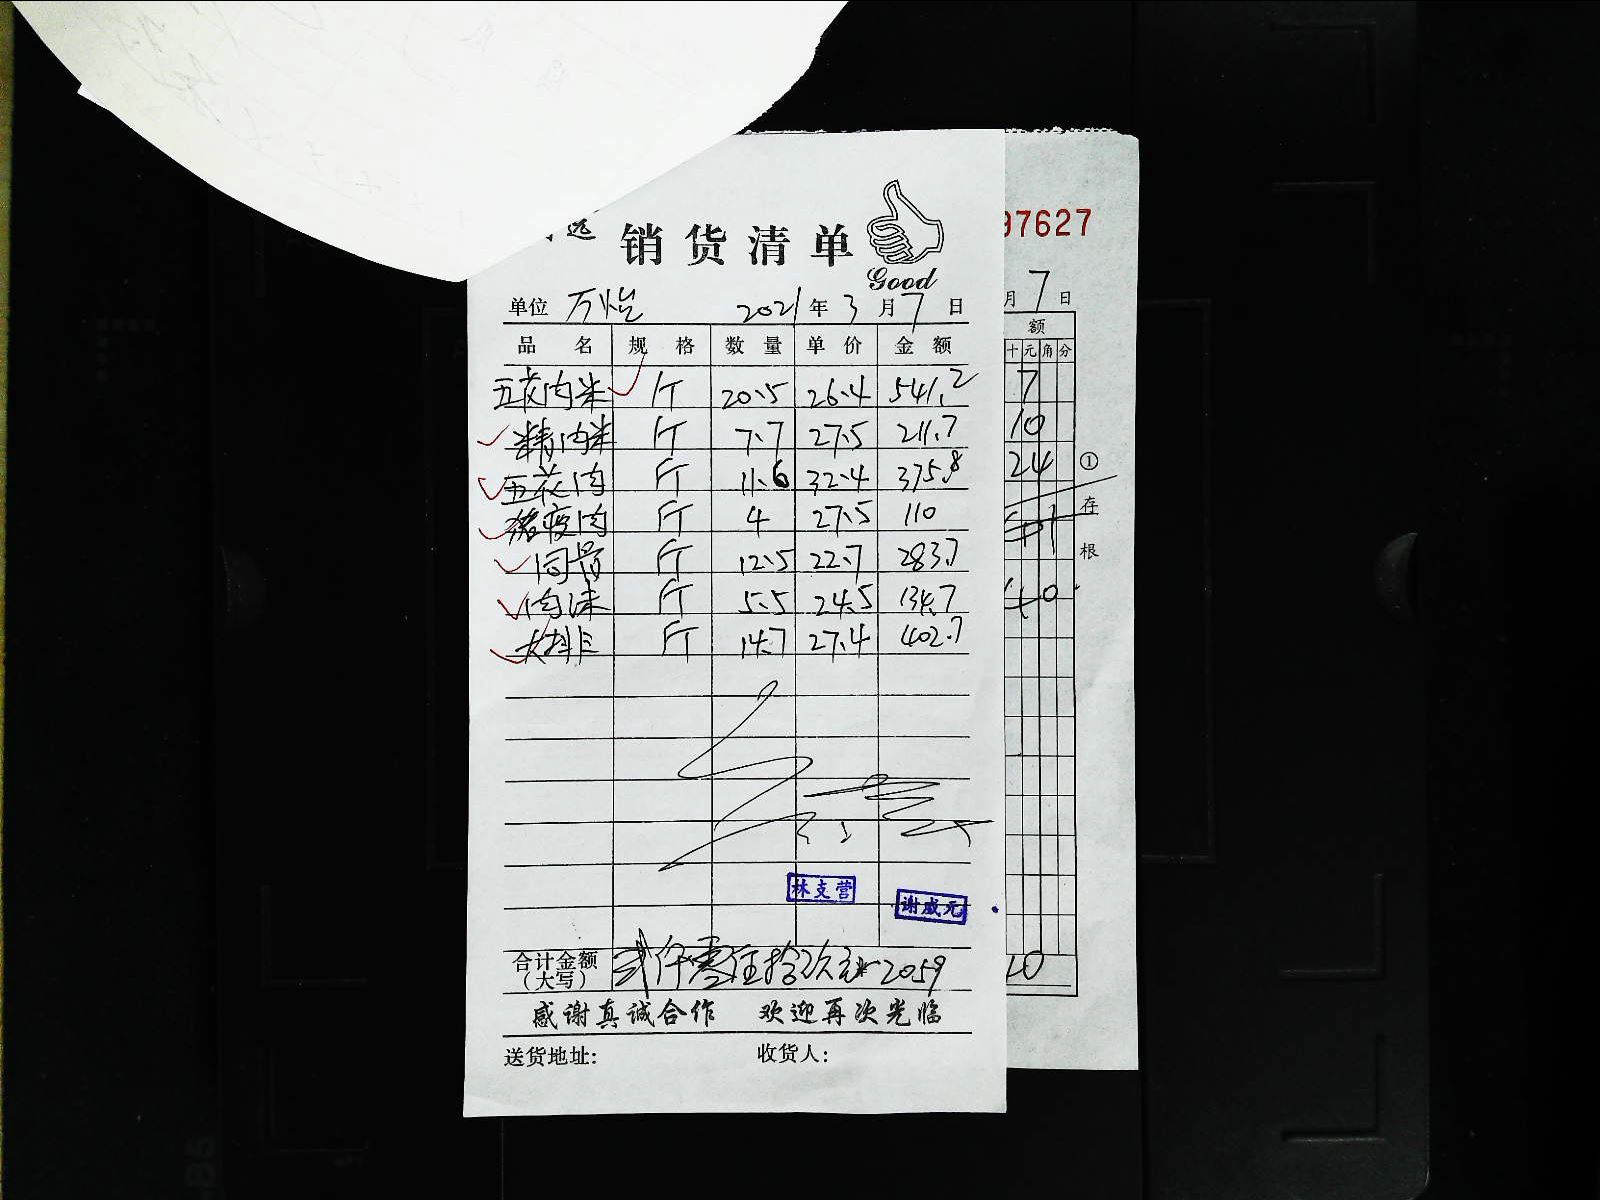 远
销货清单
Good
97627
单位 万怡 2021年3月7日
月7日
品名 规格 数量 单价 金额
额
十元角分
五花肉米 斤 20.5 26.4 541.2
7
精肉米 斤 7.7 27.5 211.7
10
五花肉 斤 11.6 32.4 375.8
24
①存根
猪夜肉 斤 4 27.5 110
同骨 斤 12.5 22.7 283.7
肉沫 斤 5.5 24.5 134.7
40
大排 斤 14.7 27.4 402.7
林支营
谢威元
合计金额(大写) 贰仟零伍拾玖元 2059
感谢真诚合作 欢迎再次光临
送货地址: 收货人: